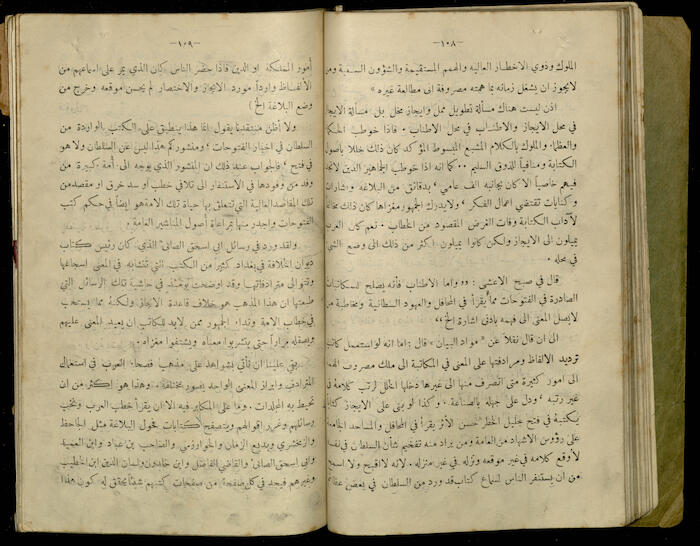 —١٠٨—
الملوك وذوي الاخطار العاليه والهمم المستقيمة والشؤون السنية ومن
لايجوز ان يشغل زمانه بما همته مصروفة الى مطالعة غيره »
اذن ليست هناك مسألة تطويل ممل وايجاز مخل بل مسألة الايجاز
في محل الايجاز والاطناب في محل الاطناب . فاذا خوطب الملوك
والعظماء والملوك بالكلام المشبع المبسوط المؤكد كان ذلك خللا باصول
الكتابة ومنافياً للذوق السليم ٠٠ كما انه اذا خوطب الجماهير الذين لايخلو
فيهم خاصياً الا كان بجانبه الف عامي ، بدقائق من البلاغة واشارات
وكنايات تقتضي اعمال الفكر ، ولايدرك الجمهور مغزاها كان ذلك مخالفاً
لآداب الكتابة وفات الغرض المقصود من الخطاب . نعم كان العرب
يميلون الى الايجاز ولكن كانوا يميلون اكثر من ذلك الى وضع الشيء
في محله .
قال في صبح الاعشى : «واما الاطناب فأنه يصلح للمكاتبات
الصادرة في الفتوحات مما يُقرأ في المحافل والعهود السلطانية ومخاطبة من
لايصل المعنى الى فهمه بادنى اشارة الخ»
الى ان قال نقلاً عن «مواد البيان» قال : اما انه لو استعمل كاتب
ترديد الالفاظ ومرادفتها على المعنى في المكاتبة الى ملك مصروف الهمة
الى امور كثيرة متى انصرف منها الى غيرها دخلها الخلل لرتب كلامه في
غير رتبه ، ودل على جهله بالصناعة . وكذا لو بنى على الايجاز كتاباً
يكتبه في فتح جليل الخطر حسن الاثر يقرأ في المحافل والمساجد الجامعة
على رؤوس الاشهاد من العامة ومن يراد منه تفخيم شأن السلطان في نفسه
لأوقع كلامه في غير موقعه ونزله في غير منزله . لانه لا اقبح ولا اسمج
من ان يستنفر الناس لسماع كتاب قد ورد من السلطان في بعض عظائم
—١٠٩—
أمور المملكة او الدين فاذا حضر الناس كان الذي يمر على اسماعهم من
الألفاظ وارداً مورد الايجاز والاختصار لم يحسن موقعه وخرج من
وضع البلاغة الخ )
ولا أظن منتقدنا يقول انما هذا ينطبق على الكتب الواردة من
السلطان في اخبار الفتوحات ، ومنشوركم هذا ليس عن السلطان ولا هو
في فتح ، فالجواب عند ذلك ان المنشور الذي يوجه الى أمة كبيرة من
وفد من وفودها في الاستنفار الى تلافي خطب او سد خرق او مقصد من
تلك المقاصد العالية التي تتعلق بها حياة تلك الامة هو ايضاً في حكم كتب
الفتوحات واجدر منها بمراعاة أصول المناشير العامة .
ولقد ورد في رسائل ابي اسحق الصابئ الذي كان رئيس كتاب
ديوان الخلافة في بغداد كثير من الكتب التي تتشابه في المعنى اسجاعها
وتتوالى مترادفاتها وقد اوضحت يومئذ في حاشية تلك الرسائل التي
طبعتها ان هذا المذهب هو خلاف قاعدة الايجاز ولكنه مما يستحب
في خطاب الامة ونداء الجمهور ممن لابد للكاتب ان يعيد المعنى عليهم
ويصقله مراراً حتى يتشربوا معناه ويشتفوا مغزاه .
بقي علينا ان نأتي بشواهد على مذهب فصحاء العرب في استعمال
المترادف وابراز المعنى الواحد بصور مختلفة . وهذا هو اكثر من ان
تحيط به المجلدات . وما على المكابر فيه الا ان يقرأ خطب العرب ونخب
رسائلهم وغرر اقوالهم ويتصفح كتابات فحول البلاغة مثل الجاحظ
والزمخشري وبديع الزمان والخوارزمي والصاحب بن عباد وابن العميد
وابي اسحق الصابئ والقاضي الفاضل وابن خلدون ولسان الدين ابن الخطيب
وغيرهم فيجد في كل صفحة من صفحات كتبهم شيئاً يحقق له كون هذا